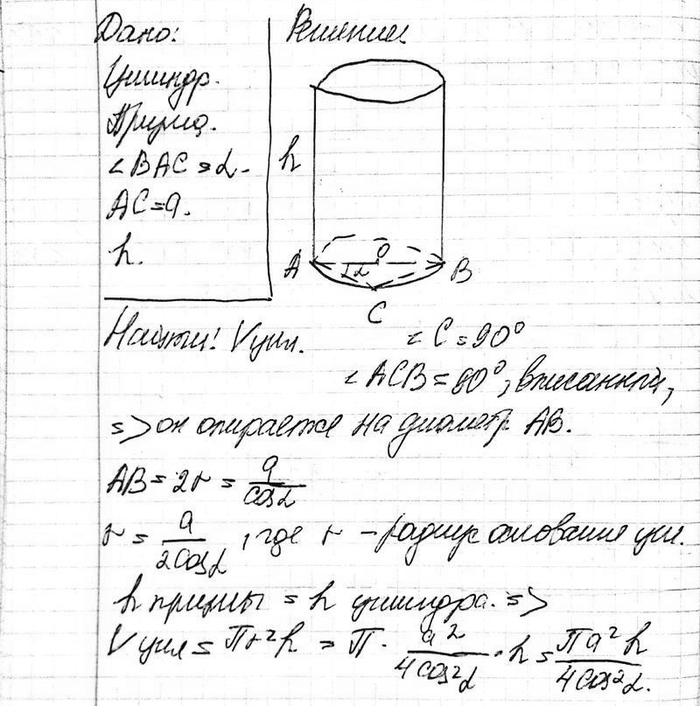 Дано:
Цилиндр.
Призма.
∠BAC = α.
AC = a.
h.
Решение.
h
A
O
α
B
C
Найти: Vцил.
∠C = 90°
∠ACB = 90°, вписанный,
=> он опирается на диаметр AB.
AB = 2r = a/cosα
r = a/2cosα, где r – радиус основания цил.
h призмы = h цилиндра. =>
Vцил = πr²h = π · a²/4cos²α · h = πa²h/4cos²α.